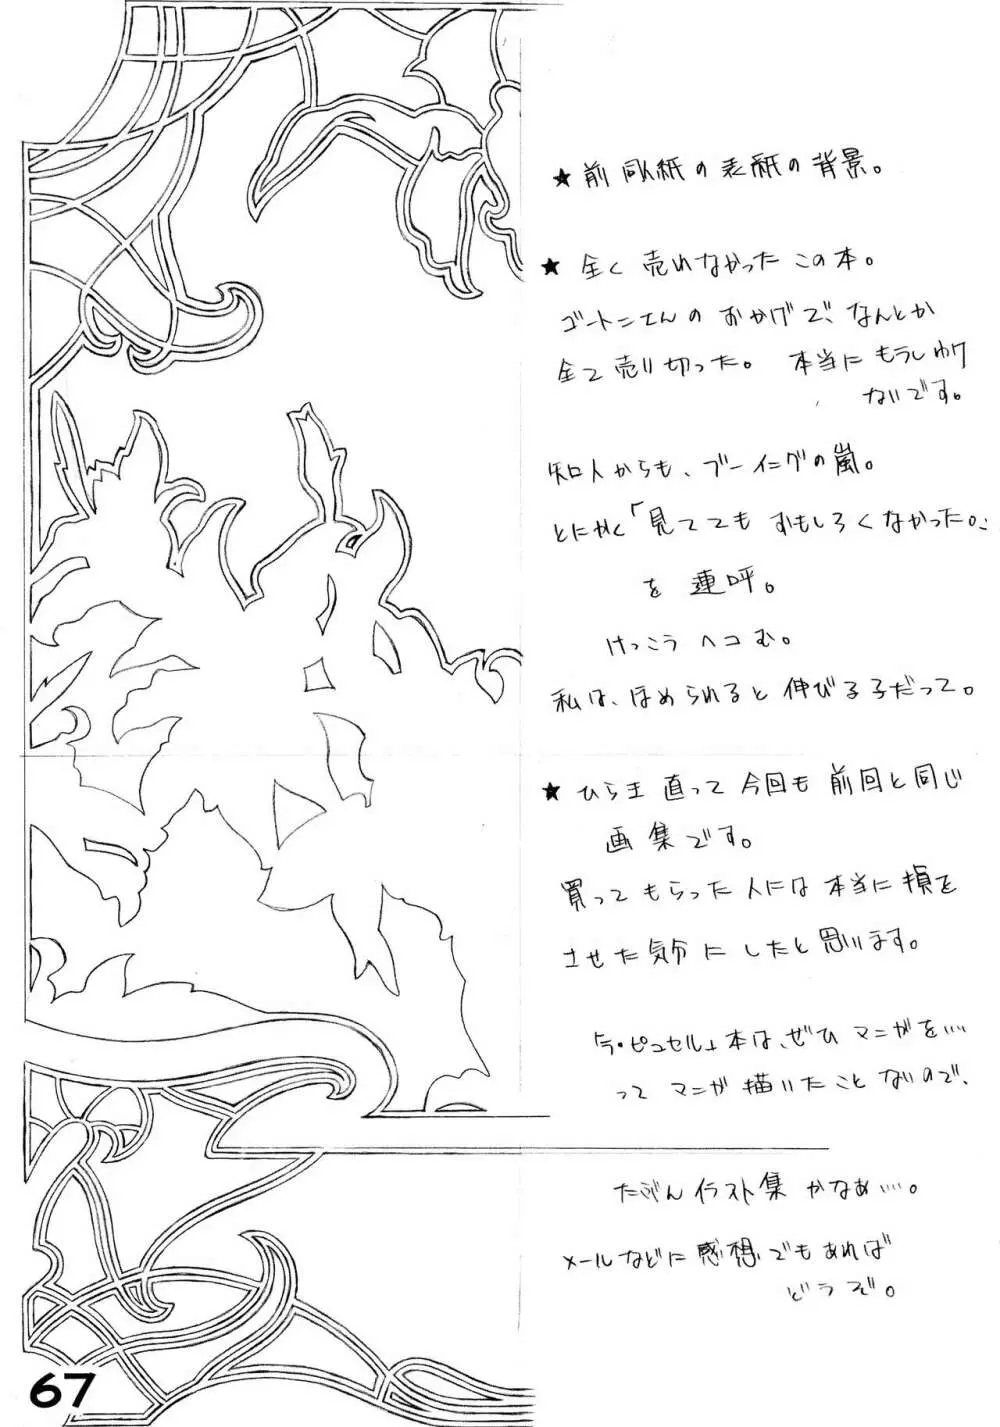 ★ 前同人紙の表紙の背景。
★ 全く売れなかったこの本。
ゴートニエんのおかげで、なんとか
全て売り切った。 本当にもうしわけ
ないです。
知人からも、ブーイングの嵐。
とにかく「見ててもおもしろくなかった。」
を連呼。
けっこうヘコむ。
私は、ほめられると伸びる子だって。
★ ひらき直って今回も前回と同じ
画集です。
買ってもらった人には本当に損を
させた気分にしたと思います。
「ラ・ピュセル」本は、ぜひマンガを‥‥
ってマンガ描いたことないので、
たぶんイラスト集かなあ‥‥。
メールなどに感想でもあれば
どうぞ。
67